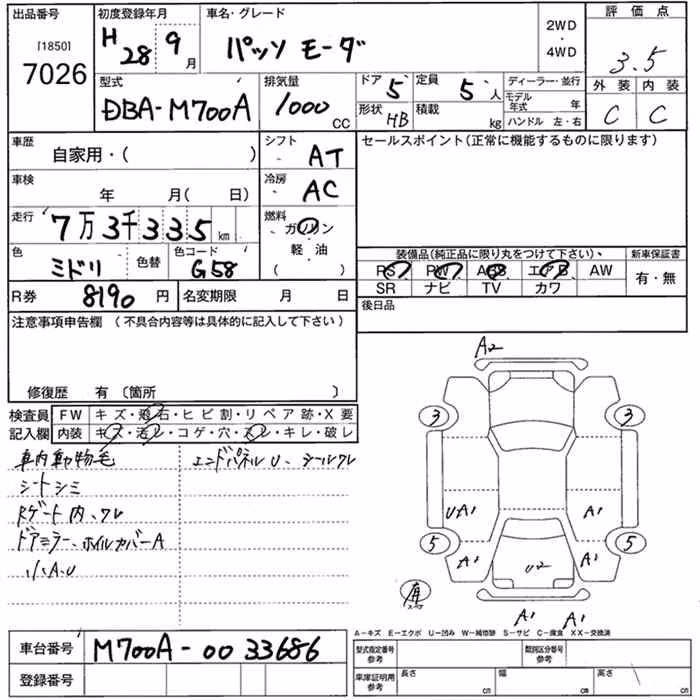 出品番号
[1850]
7026
初度登録年月
H28 9月
車名・グレード
パッソ モーダ
2WD
・
4WD
評価点
3.5
外装 内装
C C
型式
DBA-M700A
排気量
1000 CC
ドア 5
定員 5 人
形状 HB
積載 kg
ディーラー・並行
モデル年式 年
ハンドル 左・右
車歴
自家用・( )
シフト
AT
セールスポイント(正常に機能するものに限ります)
車検
年 月( 日)
冷房
AC
走行
7万3千335km
燃料
ガソリン
軽油
( )
色
ミドリ
色替
色コード
G58
装備品(純正品に限り丸をつけて下さい)、
PS PW ABS エアB AW
SR ナビ TV カワ
新車保証書
有・無
R券 8190 円
名変期限 月 日
後日品
注意事項申告欄 (不具合内容等は具体的に記入して下さい)
修復歴 有 〔箇所 〕
検査員
記入欄
FW キズ・飛石・ヒビ割・リペア跡・X要
内装 キズ・汚レ・コゲ・穴・スレ・キレ・破レ
車内動物毛
シートシミ
Rゲート内、ワレ
ドアミラー、ホイルカバーA
小A.U
エンドパネルU、シールワレ
A2
3 3
UA1 A1
5 5
A1 U2 A1
A1 A1
A-キズ E-エクボ U-凹み W-補修跡 S-サビ C-腐食 XX-交換済
車台番号
M700A-0033686
登録番号
型式指定番号
参考
類別区分番号
参考
車庫証明用
参考
長さ cm
幅 cm
高さ cm